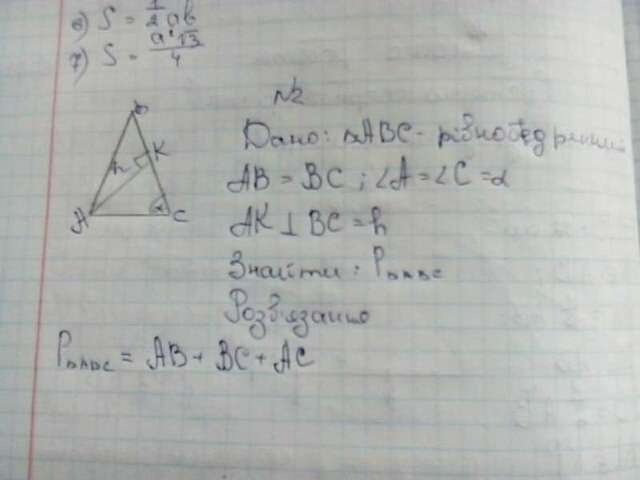 6) S = 1/2 ab
7) S = a²√3/4
№2
Дано: △ABC - рівнобедрений
AB = BC; ∠A = ∠C = α
AK ⊥ BC = h
Знайти: P△ABC
Розв'язання
P△ABC = AB + BC + AC
B
K
h
A
α
C